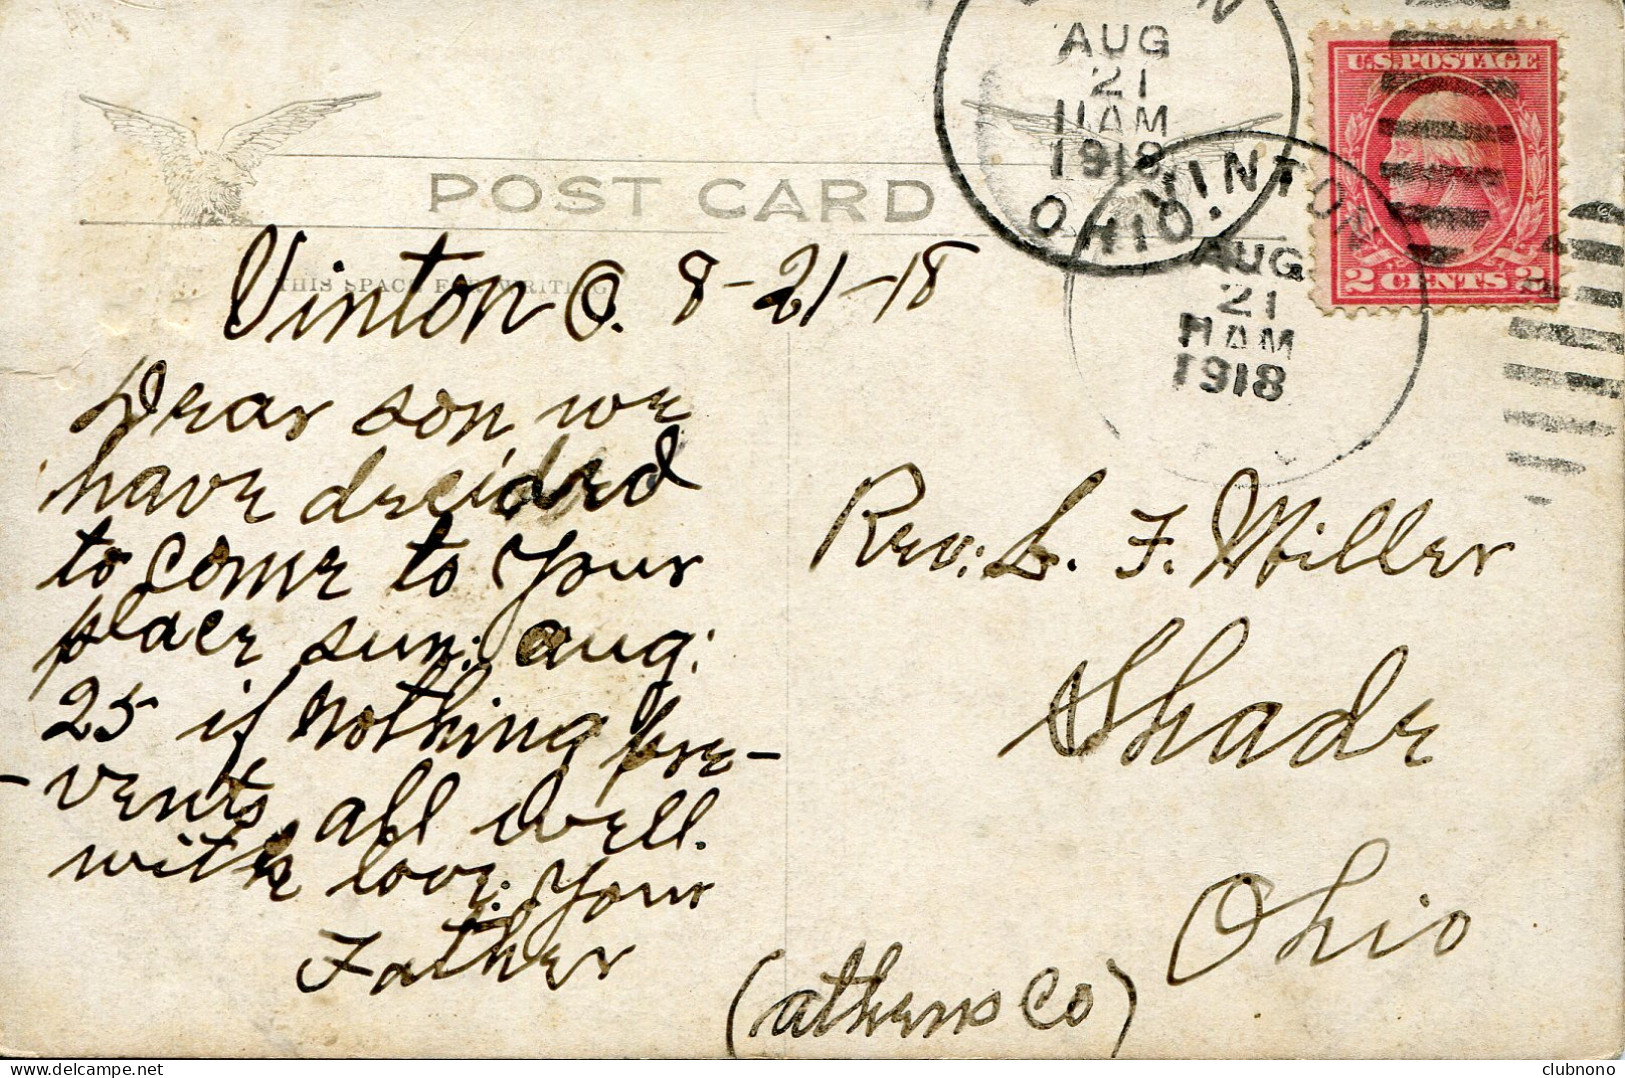 AUG
21
11 AM
1918
OHIO.
VINTON
AUG
21
11 AM
1918
U.S. POSTAGE
2 CENTS 2
POST CARD
THIS SPACE FOR WRITING
Vinton O. 8-21-18
Dear son we
have decided
to come to your
place sun: aug:
25 if nothing pre-
-vents, all well.
with love: Your
Father
Rev: L. F. Miller
Shade
Ohio
(athens Co)
clubnono